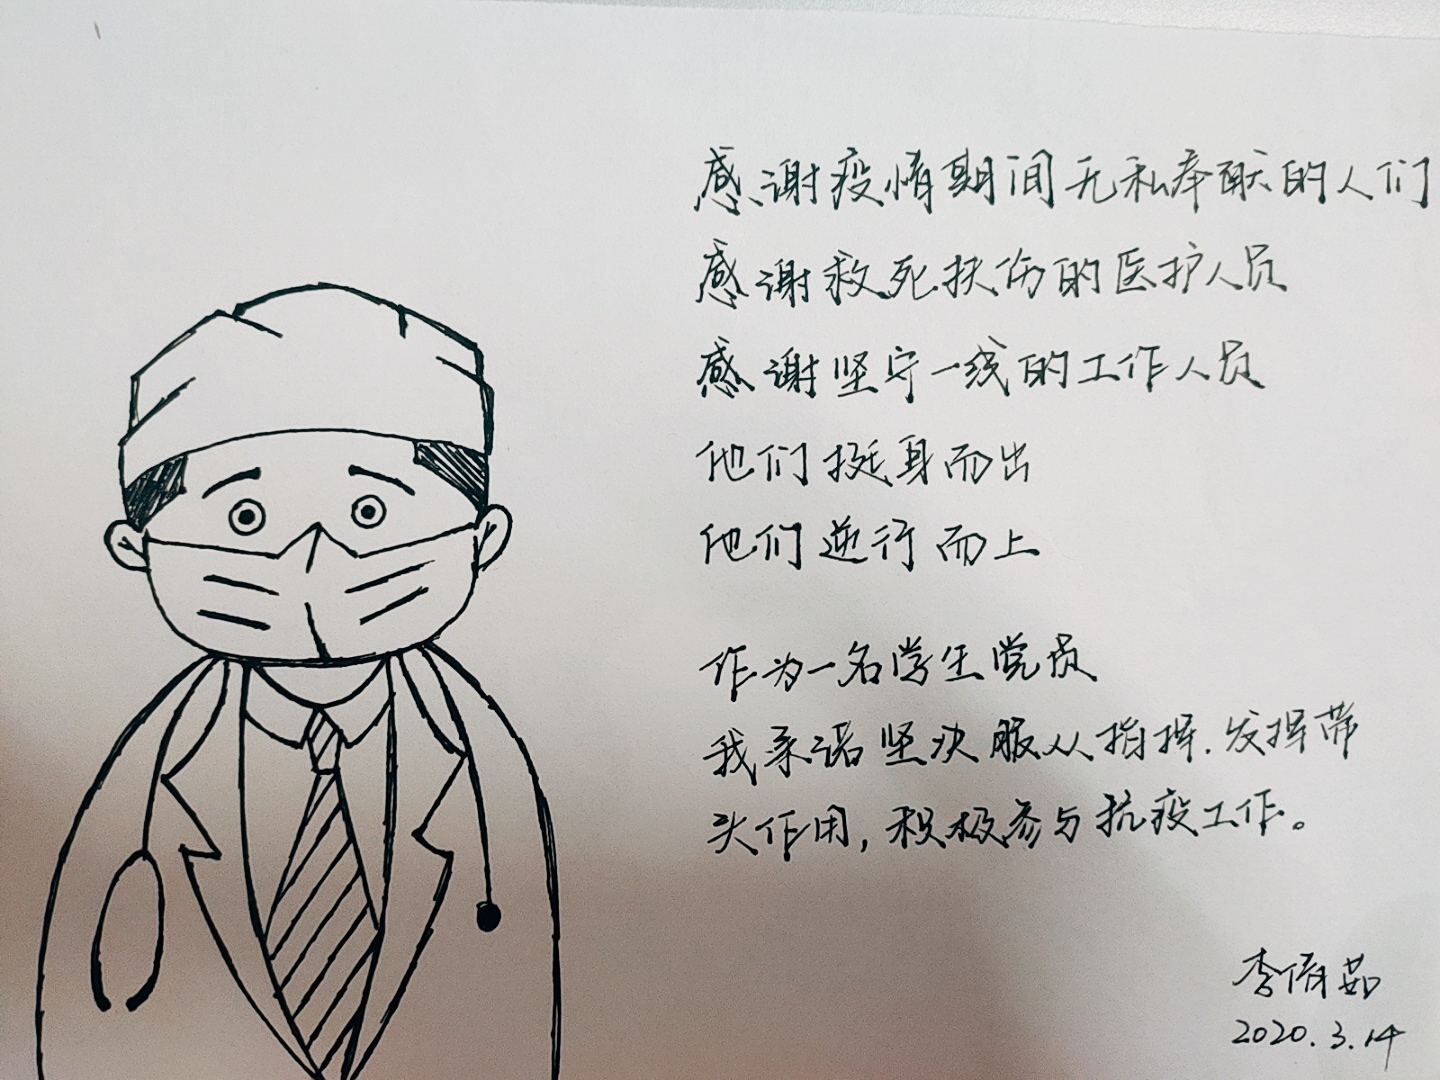 感谢疫情期间无私奉献的人们
感谢救死扶伤的医护人员
感谢坚守一线的工作人员
他们挺身而出
他们逆行而上
作为一名学生党员
我承诺坚决服从指挥,发挥带
头作用,积极参与抗疫工作。
李倩茹
2020.3.14